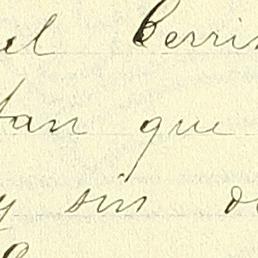 el Cerri
tan que
y sin